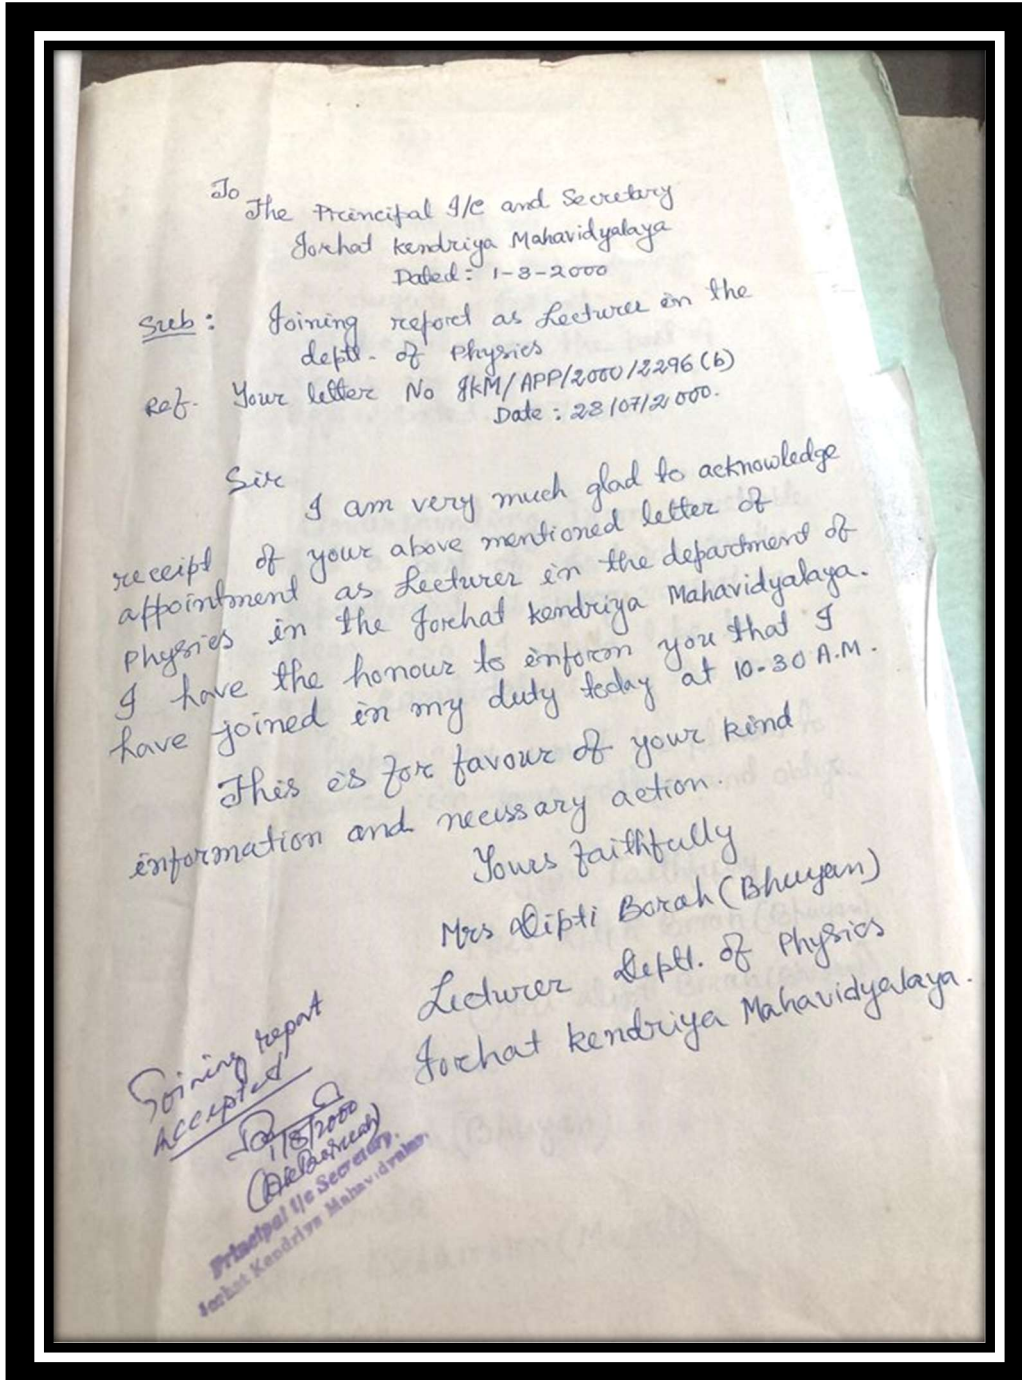 To
The Principal I/C and Secretary
Jorhat kendriya Mahavidyalaya
Dated: 1-8-2000
Sub: Joining report as Lecturer in the
deptt. of Physics
Ref. Your letter No JKM/APP/2000/2296(b)
Date: 28/07/2000.
Sir
I am very much glad to acknowledge
receipt of your above mentioned letter of
appointment as Lecturer in the department of
Physics in the Jorhat kendriya Mahavidyalaya.
I have the honour to inform you that I
have joined in my duty today at 10-30 A.M.
This is for favour of your kind
information and necessary action.
Yours faithfully
Mrs Dipti Borah (Bhuyan)
Lecturer Deptt. of Physics
Jorhat kendriya Mahavidyalaya.
Joining report
Accepted
1/8/2000
Principal I/c Secretary.
Jorhat Kendriya Mahavidyalaya.